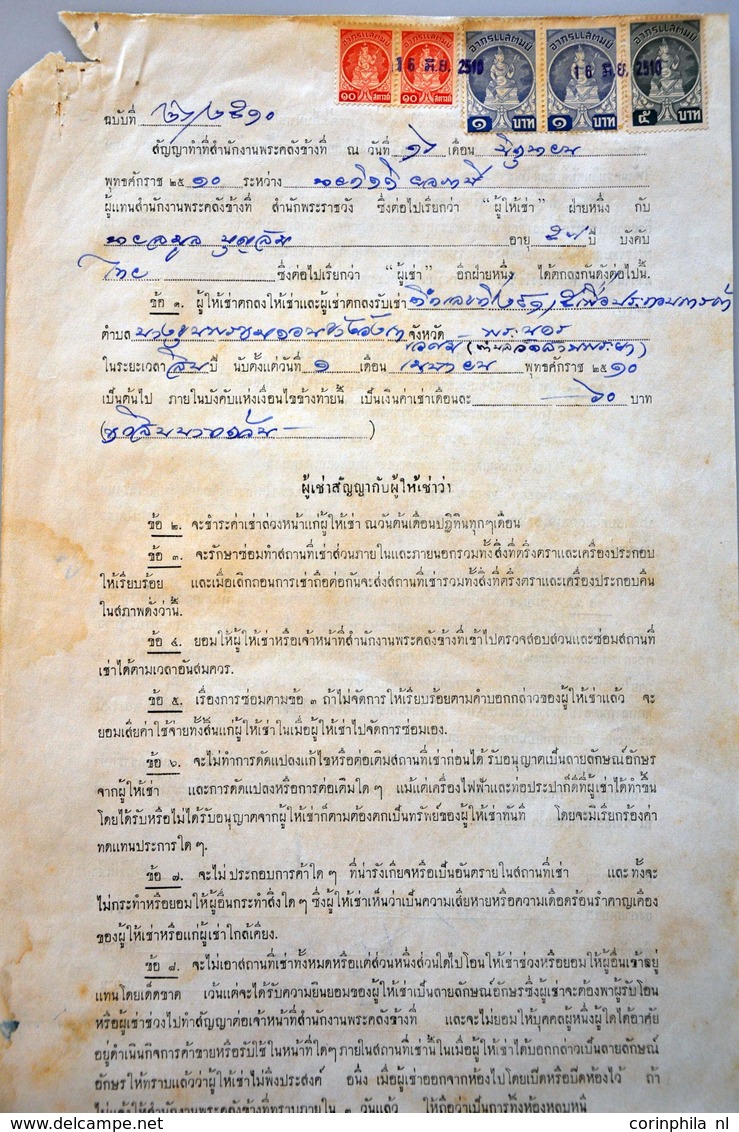 อากรแสตมป์ อากรแสตมป์ อากรแสตมป์ อากรแสตมป์ อากรแสตมป์
16 มิ.ย. 2510 16 มิ.ย. 2510
๑๐ สตางค์ ๑๐ สตางค์ ๑ บาท ๑ บาท ๕ บาท
ฉบับที่ ๒๖/๒๕๑๐
สัญญาทำที่สำนักงานพระคลังข้างที่ ณ วันที่ ๑๖ เดือน มิถุนายน
พุทธศักราช ๒๕ ๑๐ ระหว่าง
ผู้แทนสำนักงานพระคลังข้างที่ สำนักพระราชวัง ซึ่งต่อไปเรียกว่า "ผู้ให้เช่า" ฝ่ายหนึ่ง กับ
อายุ ปี บังคับ
ไทย ซึ่งต่อไปเรียกว่า "ผู้เช่า" อีกฝ่ายหนึ่ง ได้ตกลงกันดังต่อไปนี้.
ข้อ ๑. ผู้ให้เช่าตกลงให้เช่าและผู้เช่าตกลงรับเช่า
ตำบล จังหวัด พระนคร
ในระยะเวลา สิบ ปี นับตั้งแต่วันที่ ๑ เดือน เมษายน พุทธศักราช ๒๕ ๑๐
เป็นต้นไป ภายในบังคับแห่งเงื่อนไขข้างท้ายนี้ เป็นเงินค่าเช่าเดือนละ ๖๐ บาท
(หกสิบบาทถ้วน)
ผู้เช่าสัญญากับผู้ให้เช่าว่า
ข้อ ๒. จะชำระค่าเช่าล่วงหน้าแก่ผู้ให้เช่า ณวันต้นเดือนปฏิทินทุกๆเดือน
ข้อ ๓. จะรักษาซ่อมทำสถานที่เช่าส่วนภายในและภายนอกรวมทั้งสิ่งที่ตรึงตราและเครื่องประกอบ
ให้เรียบร้อย และเมื่อเลิกถอนการเช่าถือต่อกันจะส่งสถานที่เช่ารวมทั้งสิ่งที่ตรึงตราและเครื่องประกอบคืน
ในสภาพดั่งว่านี้.
ข้อ ๔. ยอมให้ผู้ให้เช่าหรือเจ้าหน้าที่สำนักงานพระคลังข้างที่เข้าไปตรวจสอบสวนและซ่อมสถานที่
เช่าได้ตามเวลาอันสมควร.
ข้อ ๕. เรื่องการซ่อมตามข้อ ๓ ถ้าไม่จัดการให้เรียบร้อยตามคำบอกกล่าวของผู้ให้เช่าแล้ว จะ
ยอมเสียค่าใช้จ่ายทั้งสิ้นแก่ผู้ให้เช่าในเมื่อผู้ให้เช่าไปจัดการซ่อมเอง.
ข้อ ๖. จะไม่ทำการดัดแปลงแก้ไขหรือต่อเติมสถานที่เช่าก่อนได้รับอนุญาตเป็นลายลักษณ์อักษร
จากผู้ให้เช่า และการดัดแปลงหรือการต่อเติมใด ๆ แม้แต่เครื่องไฟฟ้าและท่อประปาก็ดีที่ผู้เช่าได้ทำขึ้น
โดยได้รับหรือไม่ได้รับอนุญาตจากผู้ให้เช่าก็ตามต้องตกเป็นทรัพย์ของผู้ให้เช่าทันที โดยจะมิเรียกร้องค่า
ทดแทนประการใด ๆ.
ข้อ ๗. จะไม่ประกอบการค้าใด ๆ ที่น่ารังเกียจหรือเป็นอันตรายในสถานที่เช่า และทั้งจะ
ไม่กระทำหรือยอมให้ผู้อื่นกระทำสิ่งใด ๆ ซึ่งผู้ให้เช่าเห็นว่าเป็นความเสียหายหรือความเดือดร้อนรำคาญเคือง
ของผู้ให้เช่าหรือแก่ผู้เช่าใกล้เคียง.
ข้อ ๘. จะไม่เอาสถานที่เช่าทั้งหมดหรือแต่ส่วนหนึ่งส่วนใดไปโอนให้เช่าช่วงหรือยอมให้ผู้อื่นเข้าอยู่
แทนโดยเด็ดขาด เว้นแต่จะได้รับความยินยอมของผู้ให้เช่าเป็นลายลักษณ์อักษรซึ่งผู้เช่าจะต้องพาผู้รับโอน
หรือผู้เช่าช่วงไปทำสัญญาต่อเจ้าหน้าที่สำนักงานพระคลังข้างที่ และจะไม่ยอมให้บุคคลผู้หนึ่งผู้ใดได้อาศัย
อยู่ดำเนินกิจการค้าขายหรือรับใช้ในหน้าที่ใดๆภายในสถานที่เช่านี้ในเมื่อผู้ให้เช่าได้บอกกล่าวเป็นลายลักษณ์
อักษรให้ทราบแล้วว่าผู้ให้เช่าไม่พึงประสงค์ อนึ่ง เมื่อผู้เช่าออกจากห้องไปโดยเปิดหรือปิดห้องไว้ ถ้า
ไม่แจ้งให้สำนักงานพระคลังข้างที่ทราบภายใน ๓ วันแล้ว ให้ถือว่าเป็นการทิ้งห้องหลบหนี
corinphila nl